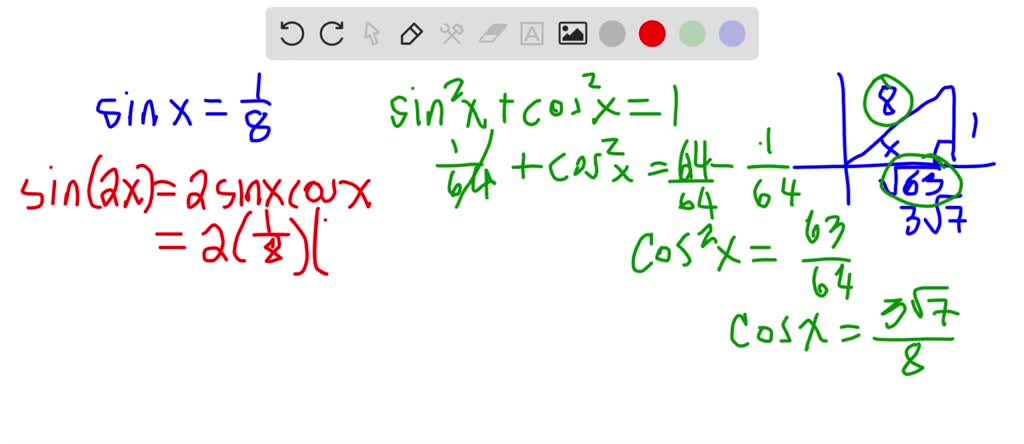 sin x = 1/8
sin(2x) = 2 sinx cosx
= 2(1/8)(
sin²x + cos²x = 1
1/64 + cos²x = 64/64 - 1/64
cos²x = 63/64
cosx = 3√7/8
8
1
x
√63
3√7
A